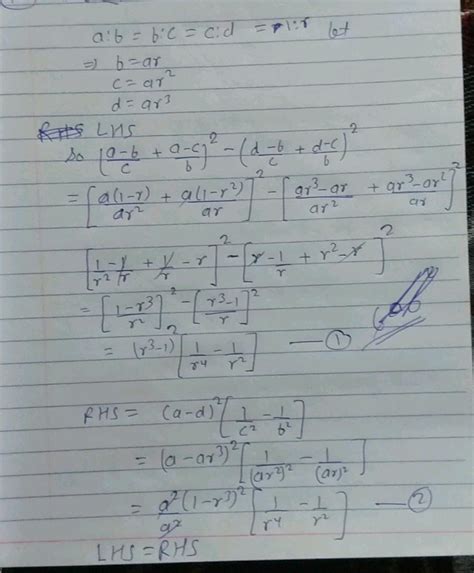 a:b = b:c = c:d = 1:r let
⇒ b = ar
c = ar²
d = ar³
LHS
So [(a-b)/c + (a-c)/b]² - ((d-b)/c + (d-c)/b)²
= [a(1-r)/ar² + a(1-r²)/ar]² - [(ar³-ar)/ar² + (ar³-ar²)/ar]²
[1/r² - 1/r + 1/r - r]² - [r - 1/r + r² - r]²
= [(1-r³)/r²]² - [(r³-1)/r]²
= (r³-1)² [1/r⁴ - 1/r²] — ①
RHS = (a-d)² [1/c² - 1/b²]
= (a-ar³)² [1/(ar²)² - 1/(ar)²]
= a²(1-r³)²/a² [1/r⁴ - 1/r²] — ②
LHS = RHS